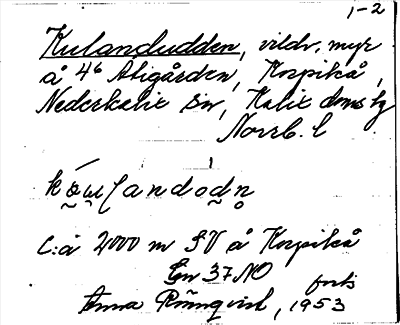 1-2
Kulandudden, vildv. myr
å 4⁶ Stigården, Korpikå,
Nederkalix sn, Kalix doms hg
Norrb. l
C:a 2000 m SV å Korpikå
Gen 37 NO
Anna Rönnqvist, 1953